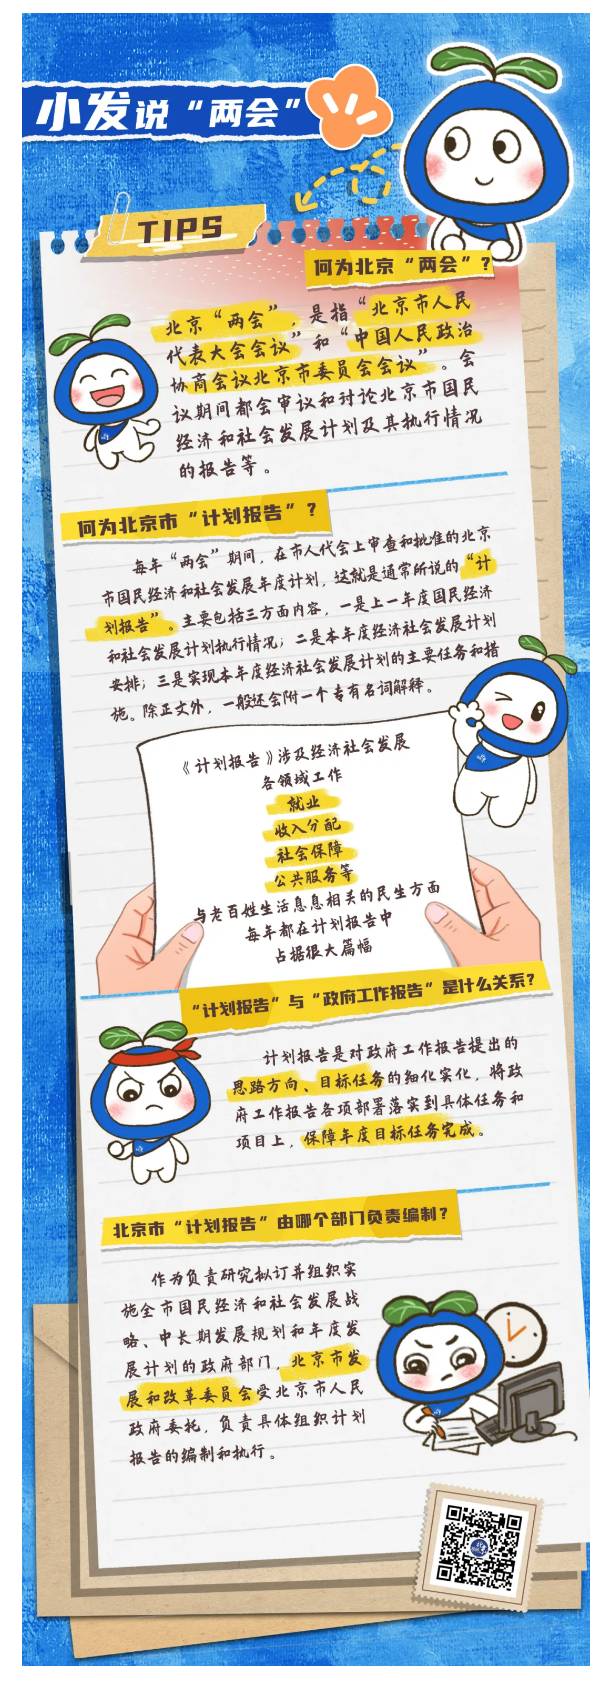 小发说“两会”
TIPS
何为北京“两会”?
北京“两会”，是指“北京市人民
代表大会会议”和“中国人民政治
协商会议北京市委员会会议”。会
议期间都会审议和讨论北京市国民
经济和社会发展计划及其执行情况
的报告等。
何为北京市“计划报告”?
每年“两会”期间，在市人代会上审查和批准的北京
市国民经济和社会发展年度计划，这就是通常所说的“计
划报告”。主要包括三方面内容，一是上一年度国民经济
和社会发展计划执行情况；二是本年度经济社会发展计划
安排；三是实现本年度经济社会发展计划的主要任务和措
施。除正文外，一般还会附一个专有名词解释。
《计划报告》涉及经济社会发展
各领域工作
就业
收入分配
社会保障
公共服务等
与老百姓生活息息相关的民生方面
每年都在计划报告中
占据很大篇幅
“计划报告”与“政府工作报告”是什么关系?
计划报告是对政府工作报告提出的
思路方向、目标任务的细化实化，将政
府工作报告各项部署落实到具体任务和
项目上，保障年度目标任务完成。
北京市“计划报告”由哪个部门负责编制?
作为负责研究拟订并组织实
施全市国民经济和社会发展战
略、中长期发展规划和年度发
展计划的政府部门，北京市发
展和改革委员会受北京市人民
政府委托，负责具体组织计划
报告的编制和执行。